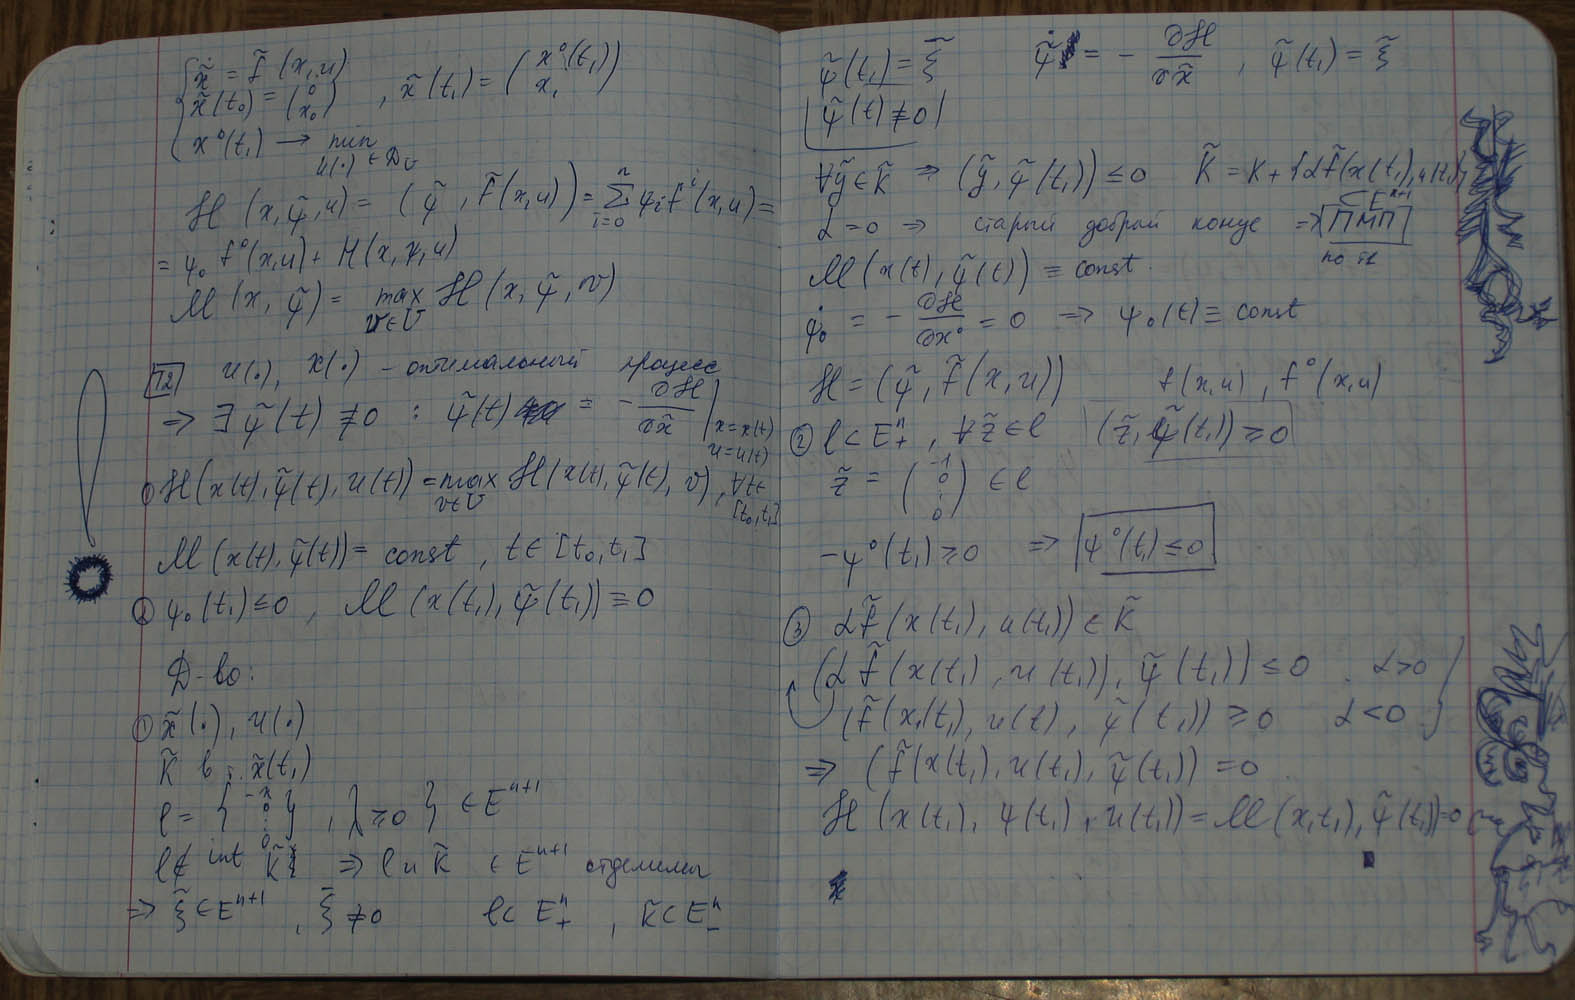 { ẋ̃ = f̃ (x, u)
x̃(t₀) = (0 x₀) , x̃(t₁) = (x⁰(t₁) x₁)
x⁰(t₁) → min u(·) ∈ D_U
ℋ (x, ψ̃, u) = (ψ̃, f̃(x,u)) = Σ_{i=0}^{n} ψᵢ fⁱ(x,u) =
= ψ₀ f⁰(x,u) + H(x, ψ, u)
ℳ (x, ψ̃) = max_{v∈U} ℋ (x, ψ̃, v)
T2 u(·), x(·) – оптимальный процесс
⇒ ∃ ψ̃(t) ≠ 0 : ψ̃(t) = − ∂ℋ/∂x̃ | x=x(t) u=u(t)
① ℋ(x(t), ψ̃(t), u(t)) = max_{v∈U} ℋ(x(t), ψ̃(t), v), ∀t∈ [t₀,t₁]
ℳ (x(t), ψ̃(t)) = const , t ∈ [t₀, t₁]
② ψ₀(t₁) ≤ 0 , ℳ (x(t₁), ψ̃(t₁)) = 0
Д-во:
① x̃(·), u(·)
K̃ в т. x̃(t₁)
ℓ = { (−λ 0 ⋮ 0) , λ ≥ 0 } ∈ Eⁿ⁺¹
ℓ ∉ int K̃ ⇒ ℓ и K̃ ∈ Eⁿ⁺¹ отделимы
⇒ ξ̃ ∈ Eⁿ⁺¹ , ξ̃ ≠ 0 ℓ ⊂ E₊ⁿ , K̃ ⊂ E₋ⁿ
ψ̃(t₁) = ξ̃ ψ̃̇ = − ∂ℋ/∂x̃ , ψ̃(t₁) = ξ̃
ψ̃(t) ≠ 0
∀ỹ ∈ K̃ ⇒ (ỹ, ψ̃(t₁)) ≤ 0 K̃ = K + {αf̃(x(t₁), u(t₁))} ⊂ Eⁿ⁺¹
α = 0 ⇒ старый добрый конус ⇒ ПМП
ℳ (x(t), ψ̃(t)) ≡ const.
ψ̇₀ = − ∂ℋ/∂x⁰ = 0 ⇒ ψ₀(t) ≡ const
ℋ = (ψ̃, f̃(x,u)) f(x,u), f⁰(x,u)
② ℓ ⊂ E₊ⁿ , ∀z̃ ∈ ℓ (z̃, ψ̃(t₁)) ≥ 0
z̃ = (−1 0 ⋮ 0) ∈ ℓ
−ψ⁰(t₁) ≥ 0 ⇒ ψ⁰(t₁) ≤ 0
③ αf̃ (x(t₁), u(t₁)) ∈ K̃
(αf̃ (x(t₁), u(t₁)), ψ̃(t₁)) ≤ 0 α>0
(f̃(x(t₁), u(t), ψ̃(t₁)) ≥ 0 α<0 }
⇒ (f̃(x(t₁), u(t₁), ψ̃(t₁)) = 0
ℋ (x(t₁), ψ(t₁), u(t₁)) = ℳ (x(t₁), ψ̃(t₁)) = 0